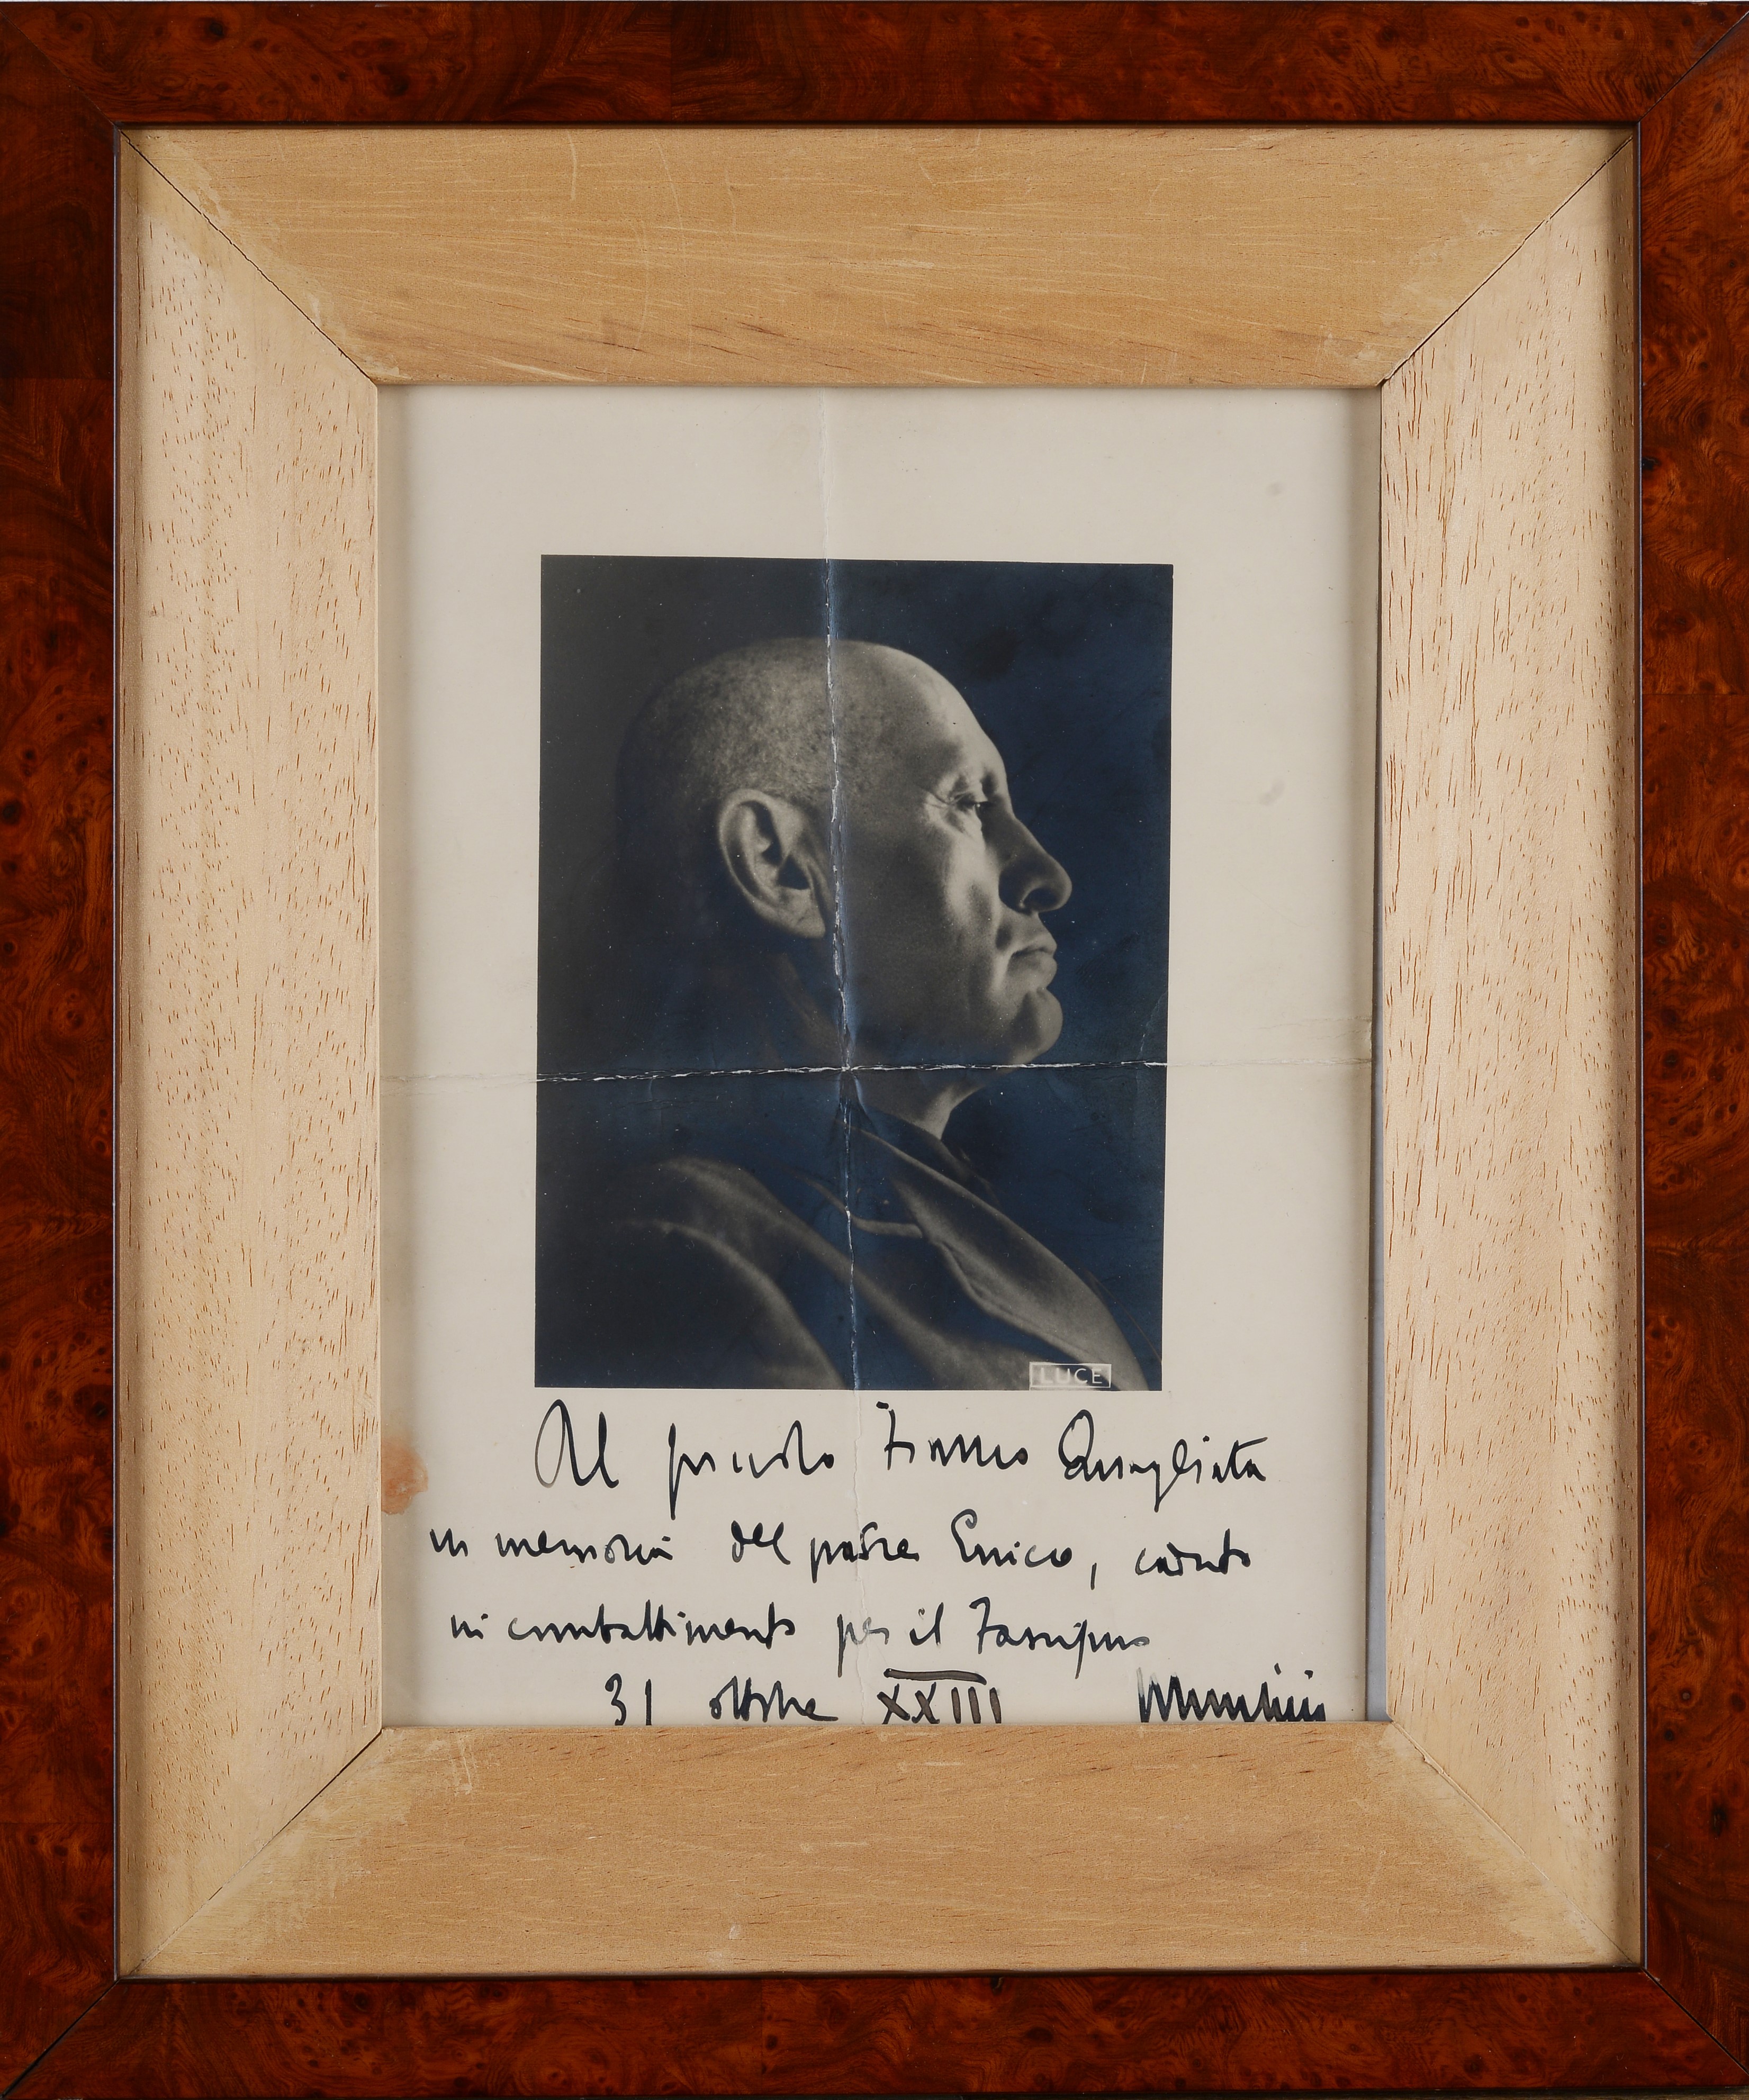 LUCE
Al piccolo Franco Quagliata
in memoria del padre Enrico, caduto
in combattimento per il Fascismo
31 ottobre XXIII Mussolini